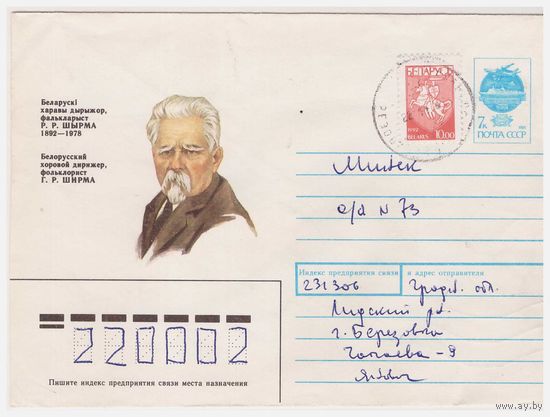 Беларускі
харавы дырыжор,
фалькларыст
Р. Р. ШЫРМА
1892—1978
Белорусский
хоровой дирижер,
фольклорист
Г. Р. ШИРМА
БЕЛАРУСЬ
1992
BELARUS 10.00
7к
ПОЧТА СССР
Минск
а/я N 73
Индекс предприятия связи и адрес отправителя
231306 Гродн. обл.
Лидский р.
г. Березовка
Чапаева - 9
220002
Пишите индекс предприятия связи места назначения
www.ay.by